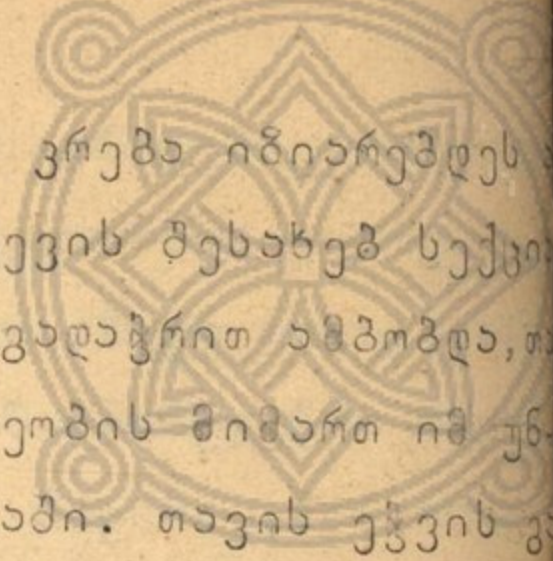 ვრება იზიარებდეს
ევის შესახებ სექცი
გადაჭრით ამბობდა, თ
ეობის მიმართ იმ უნ
აში. თავის ეჭვის გა